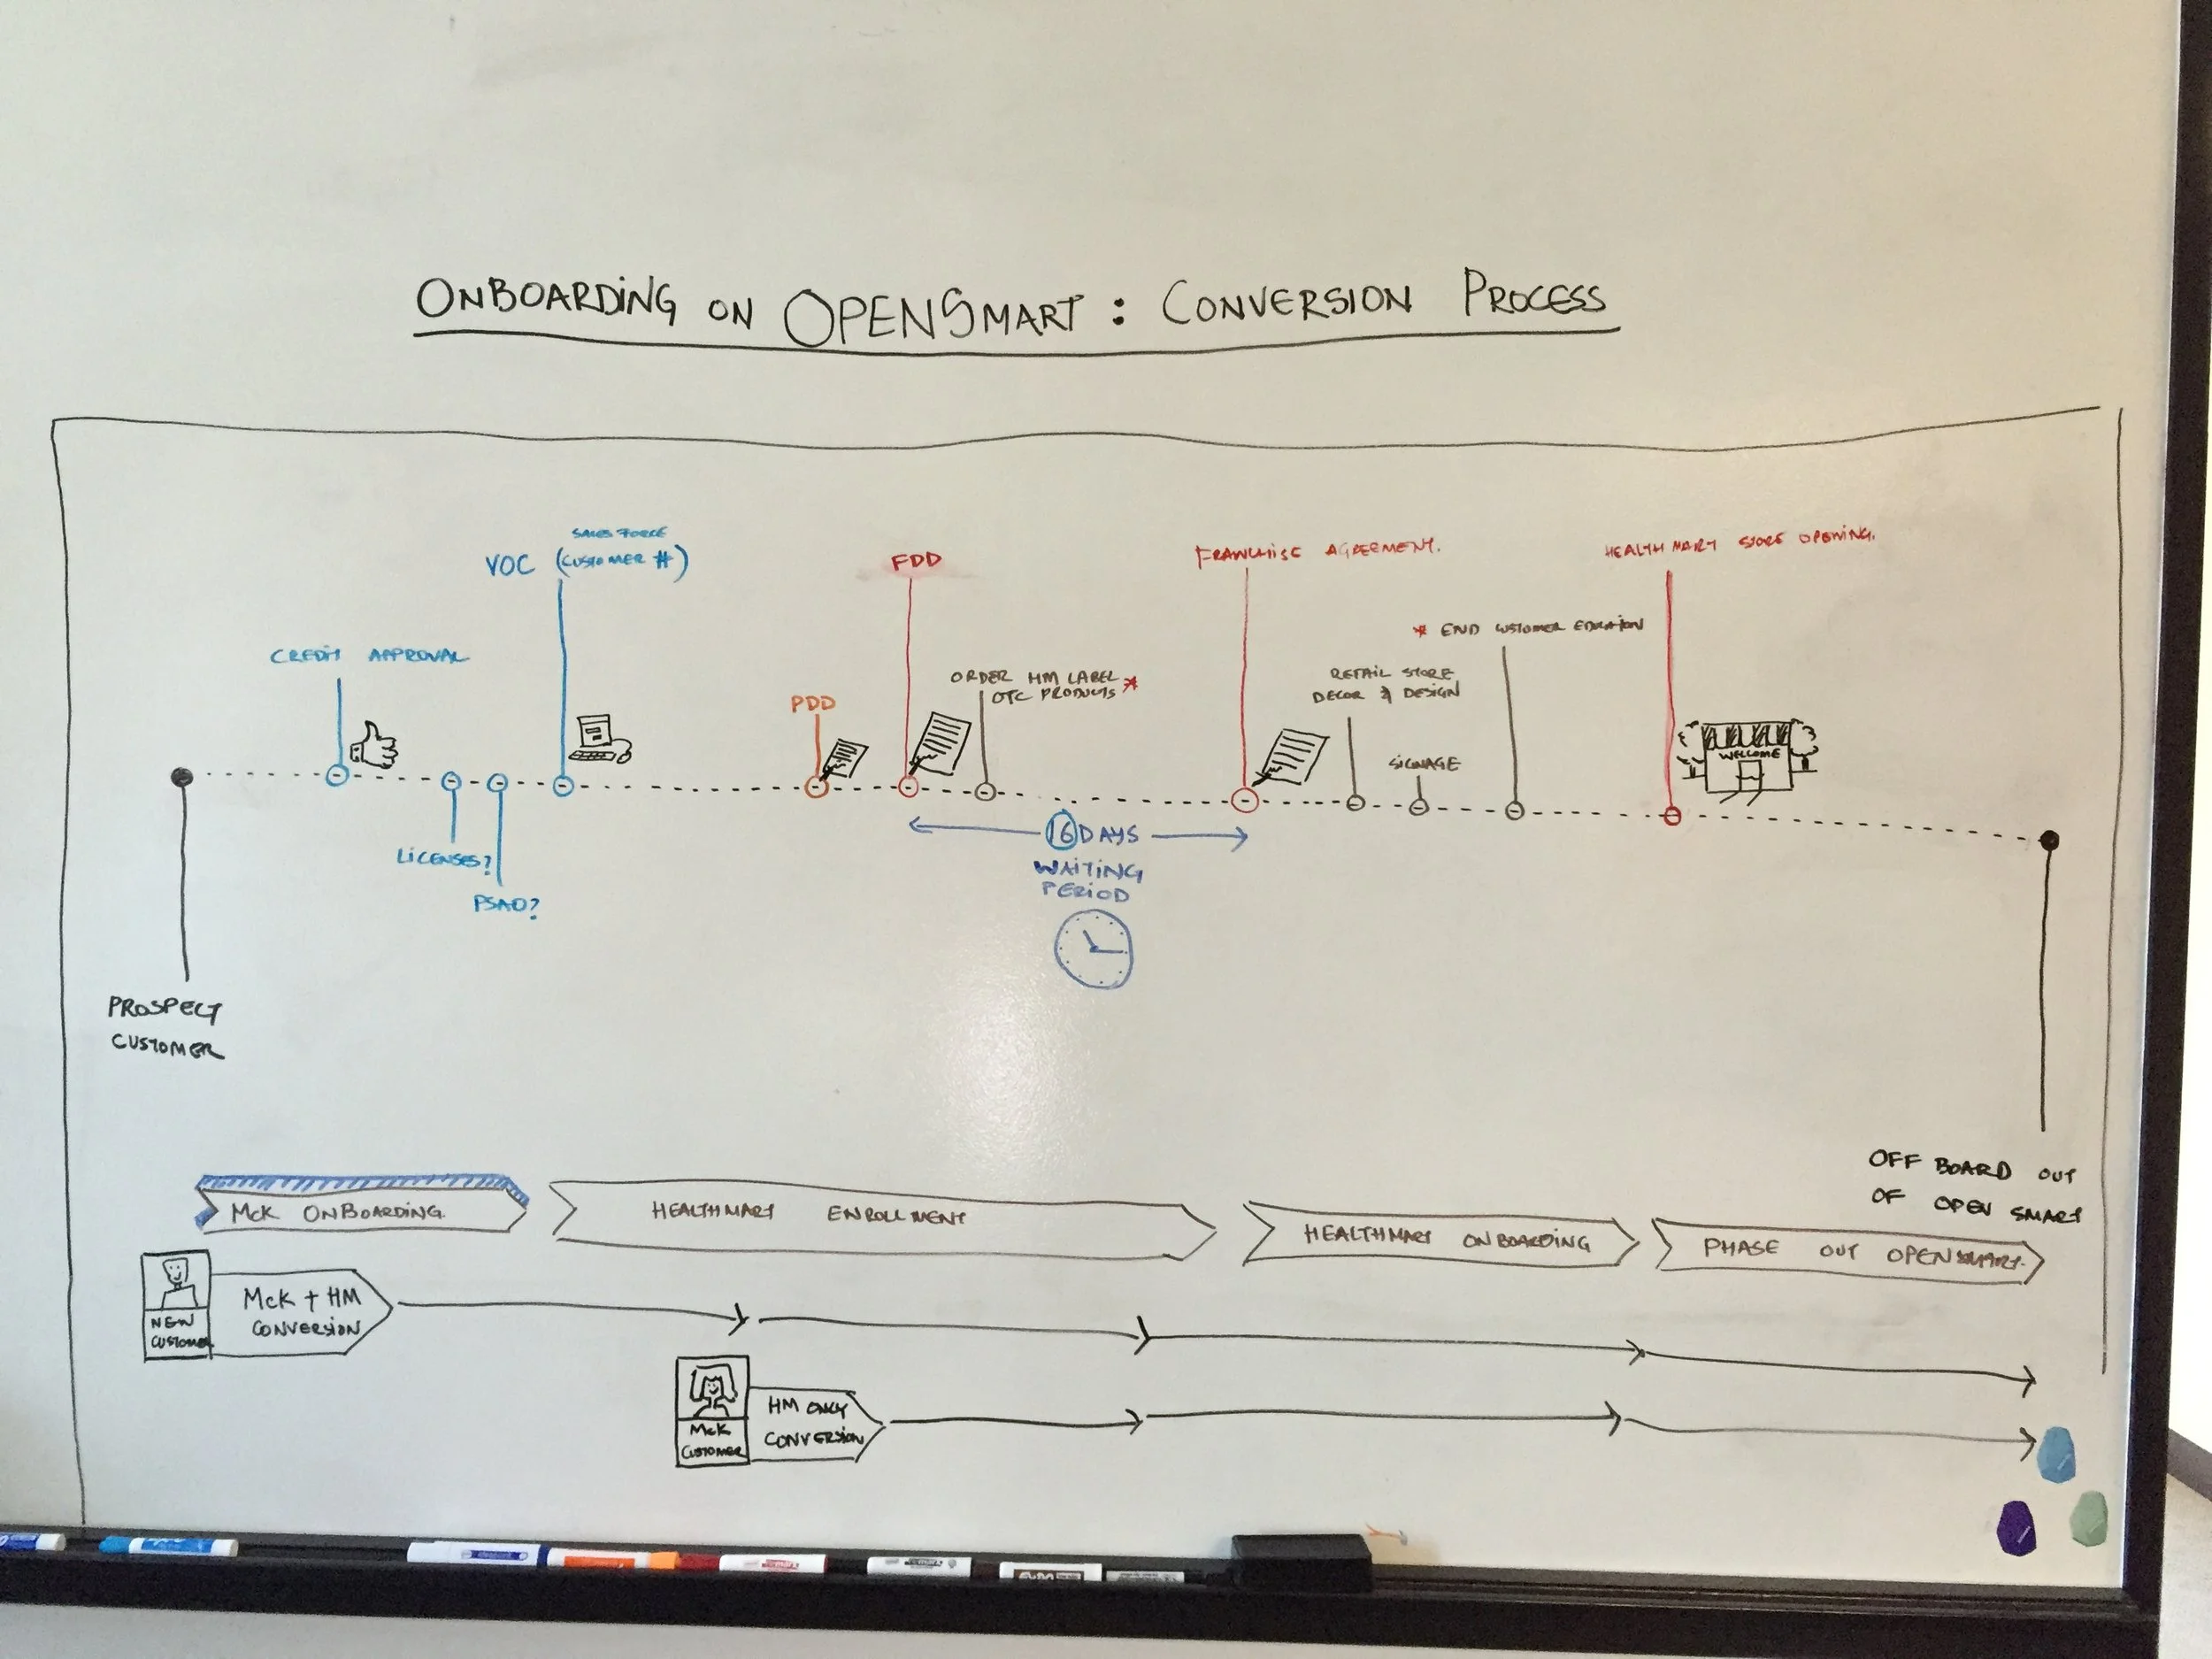 ONBOARDING ON OPENSMART : CONVERSION PROCESS
SALES FORCE
VOC (CUSTOMER #)
FDD
FRANCHISE AGREEMENT.
HEALTHMART STORE OPENING.
CREDIT APPROVAL
PDD
ORDER HM LABEL *
OTC PRODUCTS
* END CUSTOMER EDUCATION
RETAIL STORE
DECOR & DESIGN
SIGNAGE
WELCOME
LICENSES?
PSAO?
16 DAYS
WAITING
PERIOD
PROSPECT
CUSTOMER
OFF BOARD OUT
OF OPEN SMART
McK ONBOARDING
HEALTHMART ENROLLMENT
HEALTHMART ONBOARDING
PHASE OUT OPENSMART.
NEW
CUSTOMER
McK + HM
CONVERSION
McK
CUSTOMER
HM ONLY
CONVERSION
EXPO